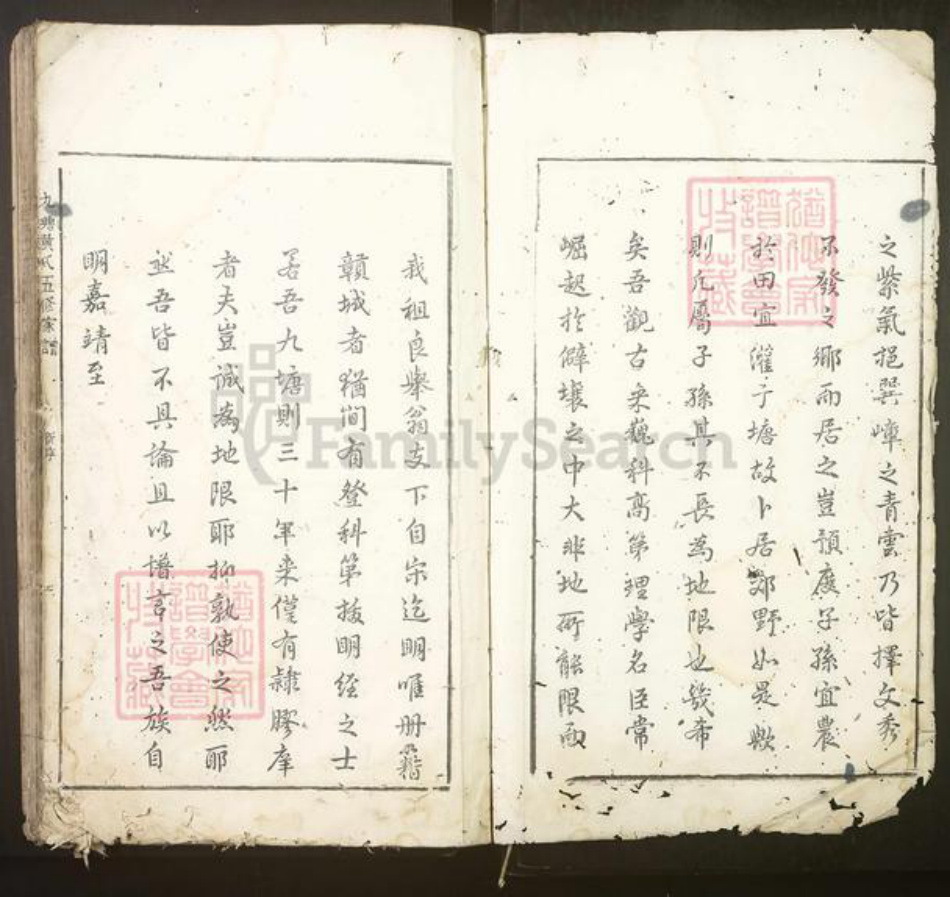 之紫氣挹巽嶂之青雲乃皆擇文秀
不發之鄉而居之豈預度子孫宜農
於田宜灌于塘故卜居郊野如是歟
則凡屬子孫其不長為地限也幾希
矣吾觀古來巍科高第理學名臣常
崛起於僻壤之中大非地所能限而
我祖良舉翁支下自宋迄明唯冊籍
贛城者猶間有登科第拔明經之士
若吾九塘則三十年來僅有隸膠庠
者夫豈誠為地限耶抑孰使之然耶
然吾皆不具論且以譜言之吾族自
明嘉靖至
九塘黃氏五修家譜
FamilySearch